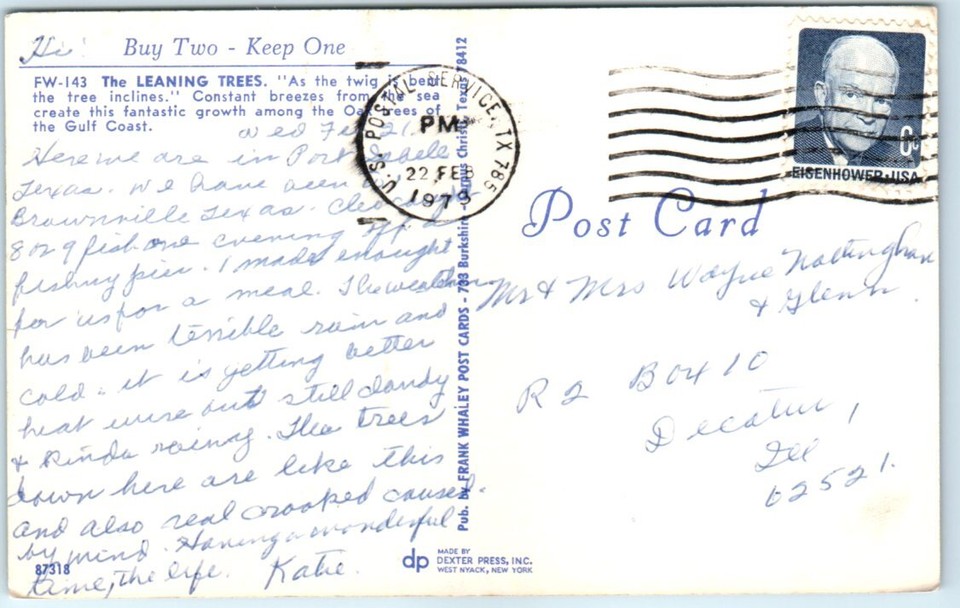 Hi!
Buy Two - Keep One
FW-143 The LEANING TREES. "As the twig is bent
the tree inclines." Constant breezes from the sea
create this fantastic growth among the Oak trees of
the Gulf Coast.
Wed Feb 21.
Here we are in Port Isbell
Texas. We have been
Brownville Texas.
8 or 9 fish one evening off a
fishing pier. I made enought
for us for a meal. The weather
has been terrible rain and
cold. it is getting better
heat wise but still cloudy
& kinda rainy. The trees
down here are like this
and also real crooked caused
by wind. Having a wonderful
time, the life. Katie.
87318
Pub. by FRANK WHALEY POST CARDS - 733 Burkshire, Corpus Christi, Texas 78412
dp MADE BY
DEXTER PRESS, INC.
WEST NYACK, NEW YORK
U.S. POSTAL SERVICE, TX 785
PM
22 FEB
1979
6c
EISENHOWER·USA
Post Card
Mr & Mrs Wayne Nottingham
& Glenn.
R 2 Box 10
Decatur,
Ill
62521.